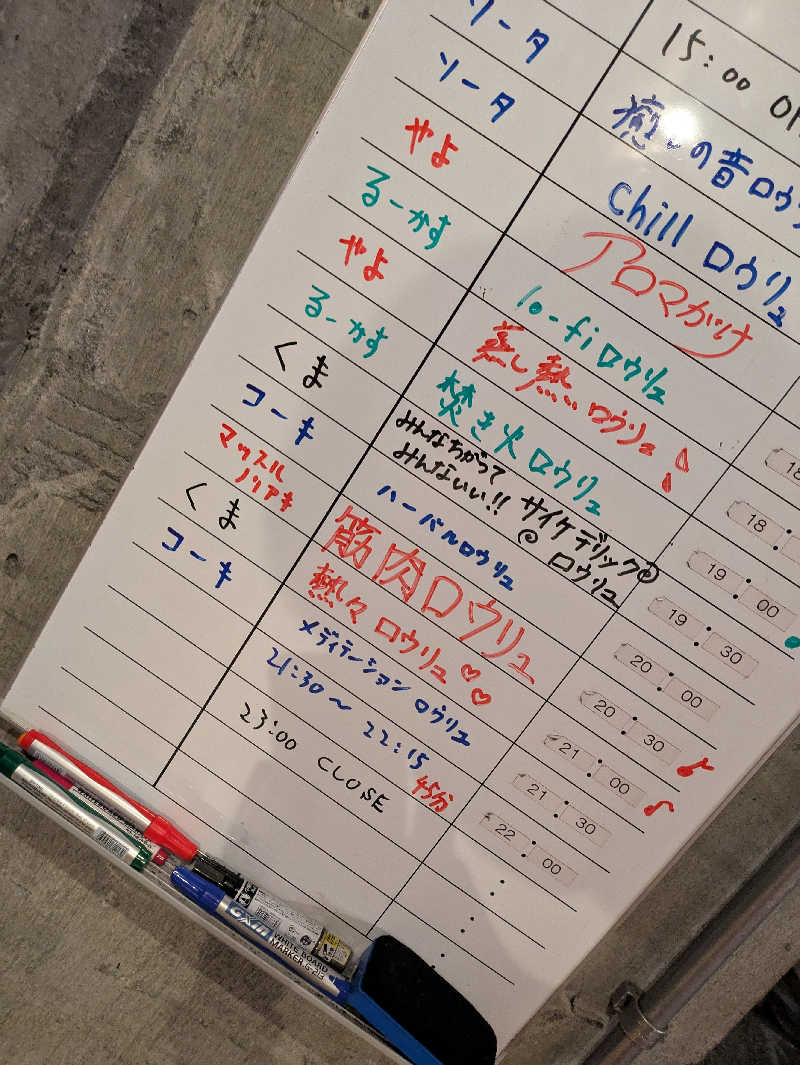 15:00
ソータ
癒しの音ロウリュ
ソータ
Chill ロウリュ
やよ
アロマかけ
るーかす
lo-fi ロウリュ
やよ
蒸し熱いロウリュ♪
18
るーかす
焚き火ロウリュ
18:
くま
みんなちがって
みんないい!! サイケデリック
ロウリュ
19:00
コーキ
ハーバルロウリュ
19:30
マッスル
ノリアキ
筋肉ロウリュ
20:00
くま
熱々ロウリュ♡♡
20:30
コーキ
メディテーション ロウリュ
21:00
21:30〜22:15
45分
21:30
23:00 CLOSE
22:00
WHITE BOARD
MARKER